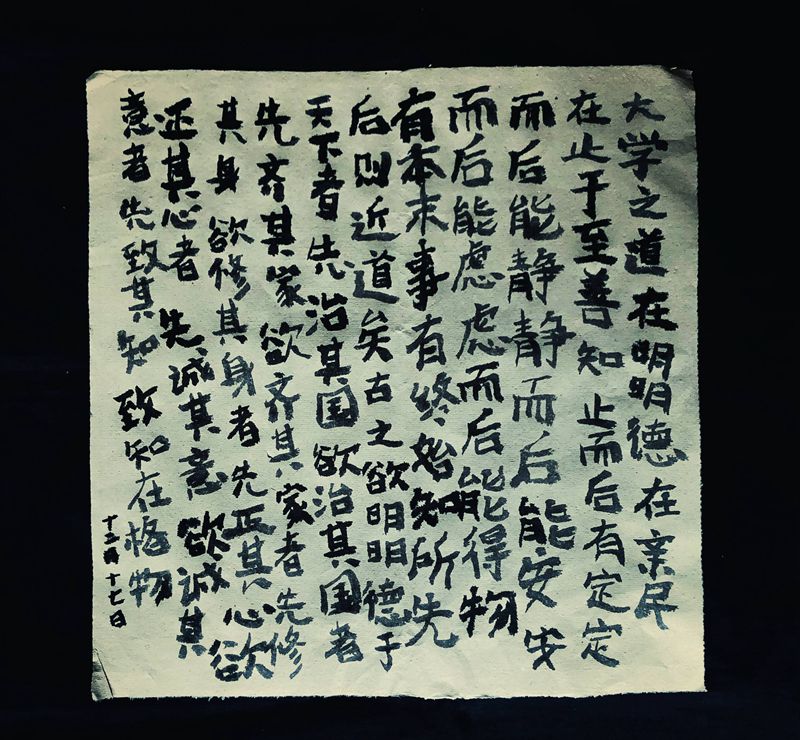 大学之道在明明德在亲民
在止于至善知止而后有定定
而后能静静而后能安安
而后能虑虑而后能得物
有本末事有终始知所先
后则近道矣古之欲明明德于
天下者先治其国欲治其国者
先齐其家欲齐其家者先修
其身欲修其身者先正其心欲
正其心者先诚其意欲诚其
意者先致其知致知在格物
十二月十七日